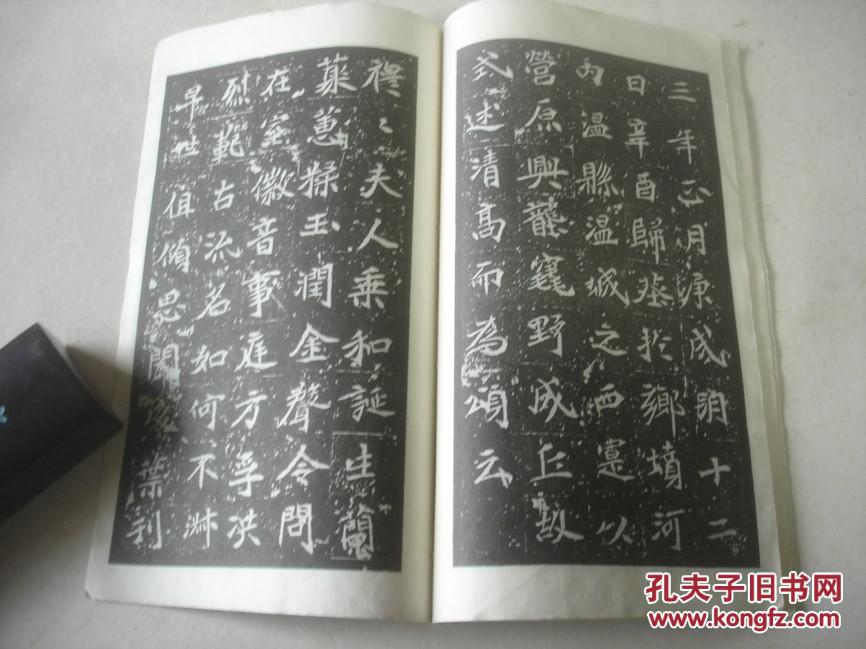 三年正月庚戌朔十二
日辛酉歸葬於鄉墳河
內溫縣溫城之西憲以
營原興襲窀野成丘故
式述清高而為頌云
穆々夫人乘和誕生蘭
蕙糅玉潤金聲令問
在室徽音事庭方孚洪
烈範古流名如何不淋
早世徂傾思聞後葉刊
孔夫子旧书网
www.kongfz.com